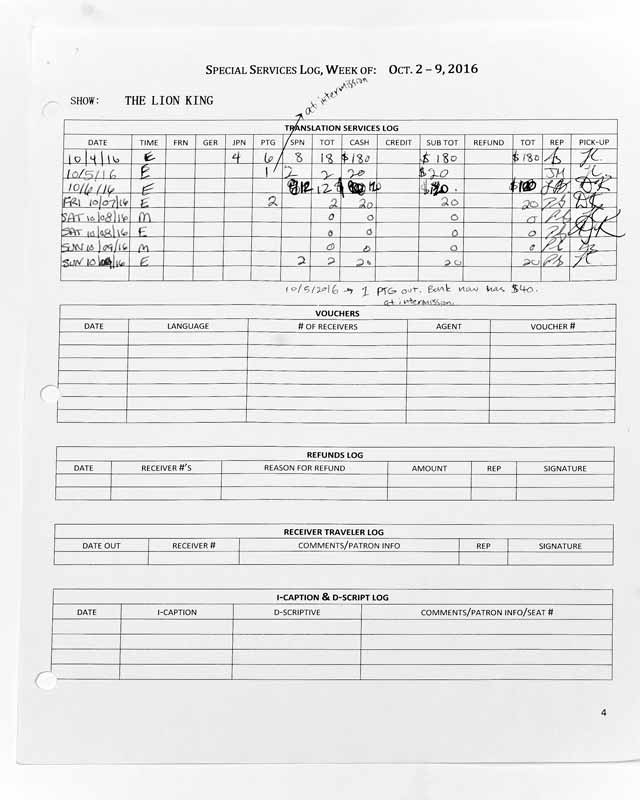 SPECIAL SERVICES LOG, WEEK OF: OCT. 2 – 9, 2016
at intermission
SHOW: THE LION KING
TRANSLATION SERVICES LOG
DATE TIME FRN GER JPN PTG SPN TOT CASH CREDIT SUB TOT REFUND TOT REP PICK-UP
10/4/16 E 4 6 8 18 $180 $180 $180
10/5/16 E 1 2 2 20 $20 JM
10/6/16 E 12 12
FRI 10/07/16 E 2 2 20 20 20
SAT 10/08/16 M 0 0 0 0
SAT 10/08/16 E 0 0 0 0
SUN 10/09/16 M 0 0 0 0
SUN 10/09/16 E 2 2 20 20 20
10/5/2016 → 1 PTG out. Bank now has $40.
at intermission.
VOUCHERS
DATE LANGUAGE # OF RECEIVERS AGENT VOUCHER #
REFUNDS LOG
DATE RECEIVER #'S REASON FOR REFUND AMOUNT REP SIGNATURE
RECEIVER TRAVELER LOG
DATE OUT RECEIVER # COMMENTS/PATRON INFO REP SIGNATURE
I-CAPTION & D-SCRIPT LOG
DATE I-CAPTION D-SCRIPTIVE COMMENTS/PATRON INFO/SEAT #
4